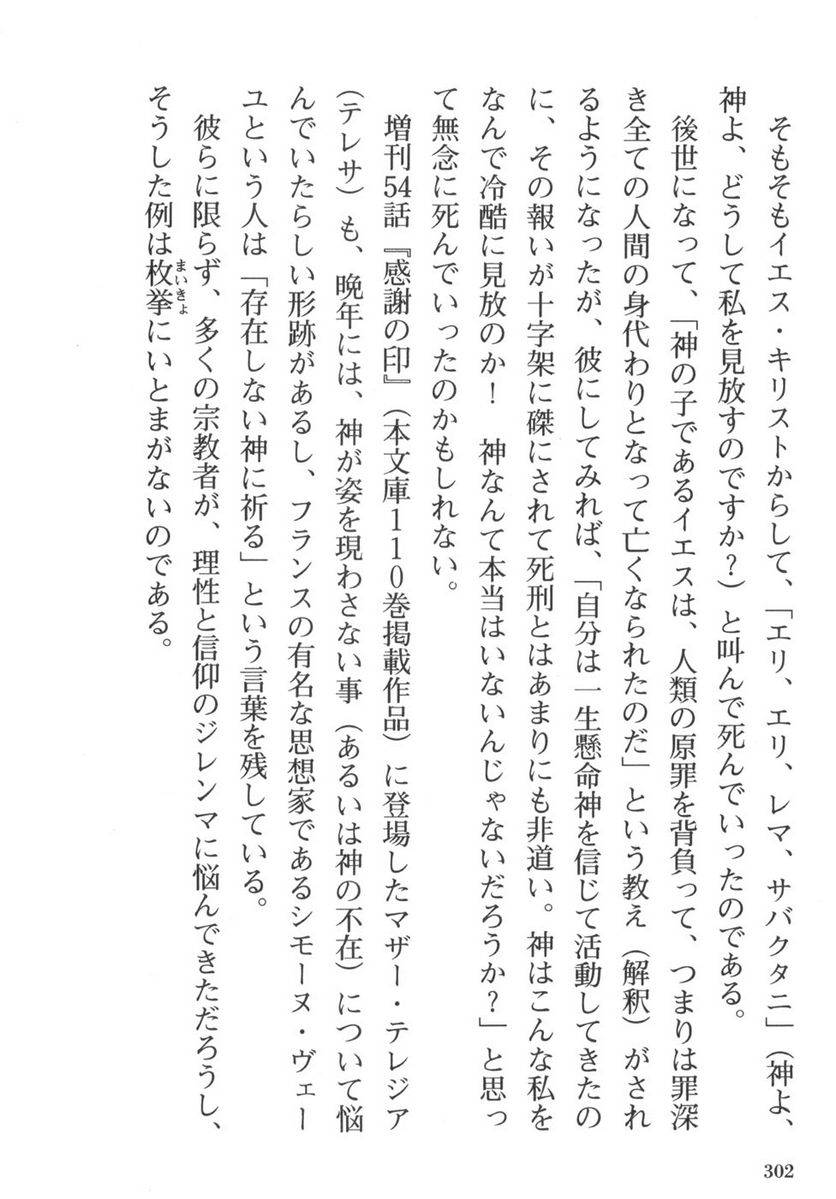 そもそもイエス・キリストからして、「エリ、エリ、レマ、サバクタニ」（神よ、
神よ、どうして私を見放すのですか？）と叫んで死んでいったのである。
後世になって、「神の子であるイエスは、人類の原罪を背負って、つまりは罪深
き全ての人間の身代わりとなって亡くなられたのだ」という教え（解釈）がされ
るようになったが、彼にしてみれば、「自分は一生懸命神を信じて活動してきたの
に、その報いが十字架に磔にされて死刑とはあまりにも非道い。神はこんな私を
なんで冷酷に見放のか！　神なんて本当はいないんじゃないだろうか？」と思っ
て無念に死んでいったのかもしれない。
増刊54話『感謝の印』（本文庫110巻掲載作品）に登場したマザー・テレジア
（テレサ）も、晩年には、神が姿を現わさない事（あるいは神の不在）について悩
んでいたらしい形跡があるし、フランスの有名な思想家であるシモーヌ・ヴェー
ユという人は「存在しない神に祈る」という言葉を残している。
彼らに限らず、多くの宗教者が、理性と信仰のジレンマに悩んできただろうし、
そうした例は枚挙にいとまがないのである。
まいきょ
302